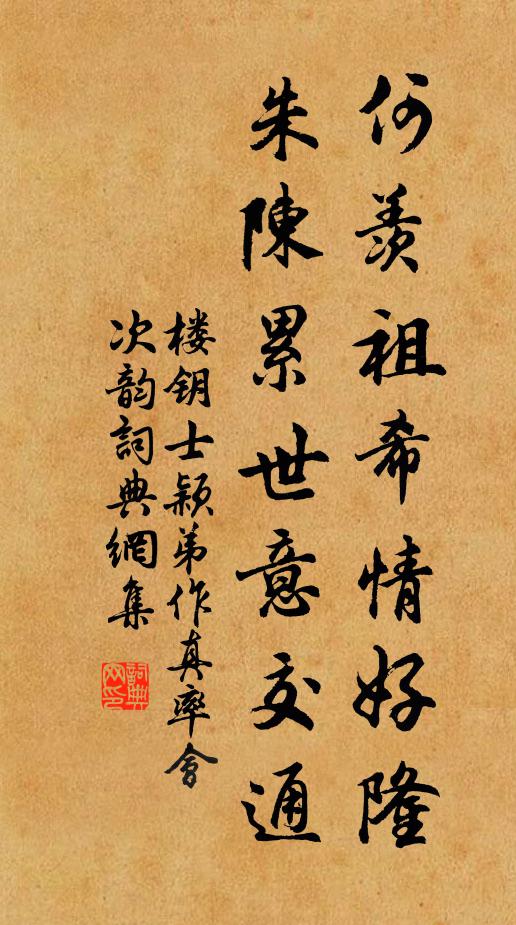 何羡祖希情好隆
朱陳累世意交通
楼钥士颖弟作真率會
次韵詞典網集
詞典网印